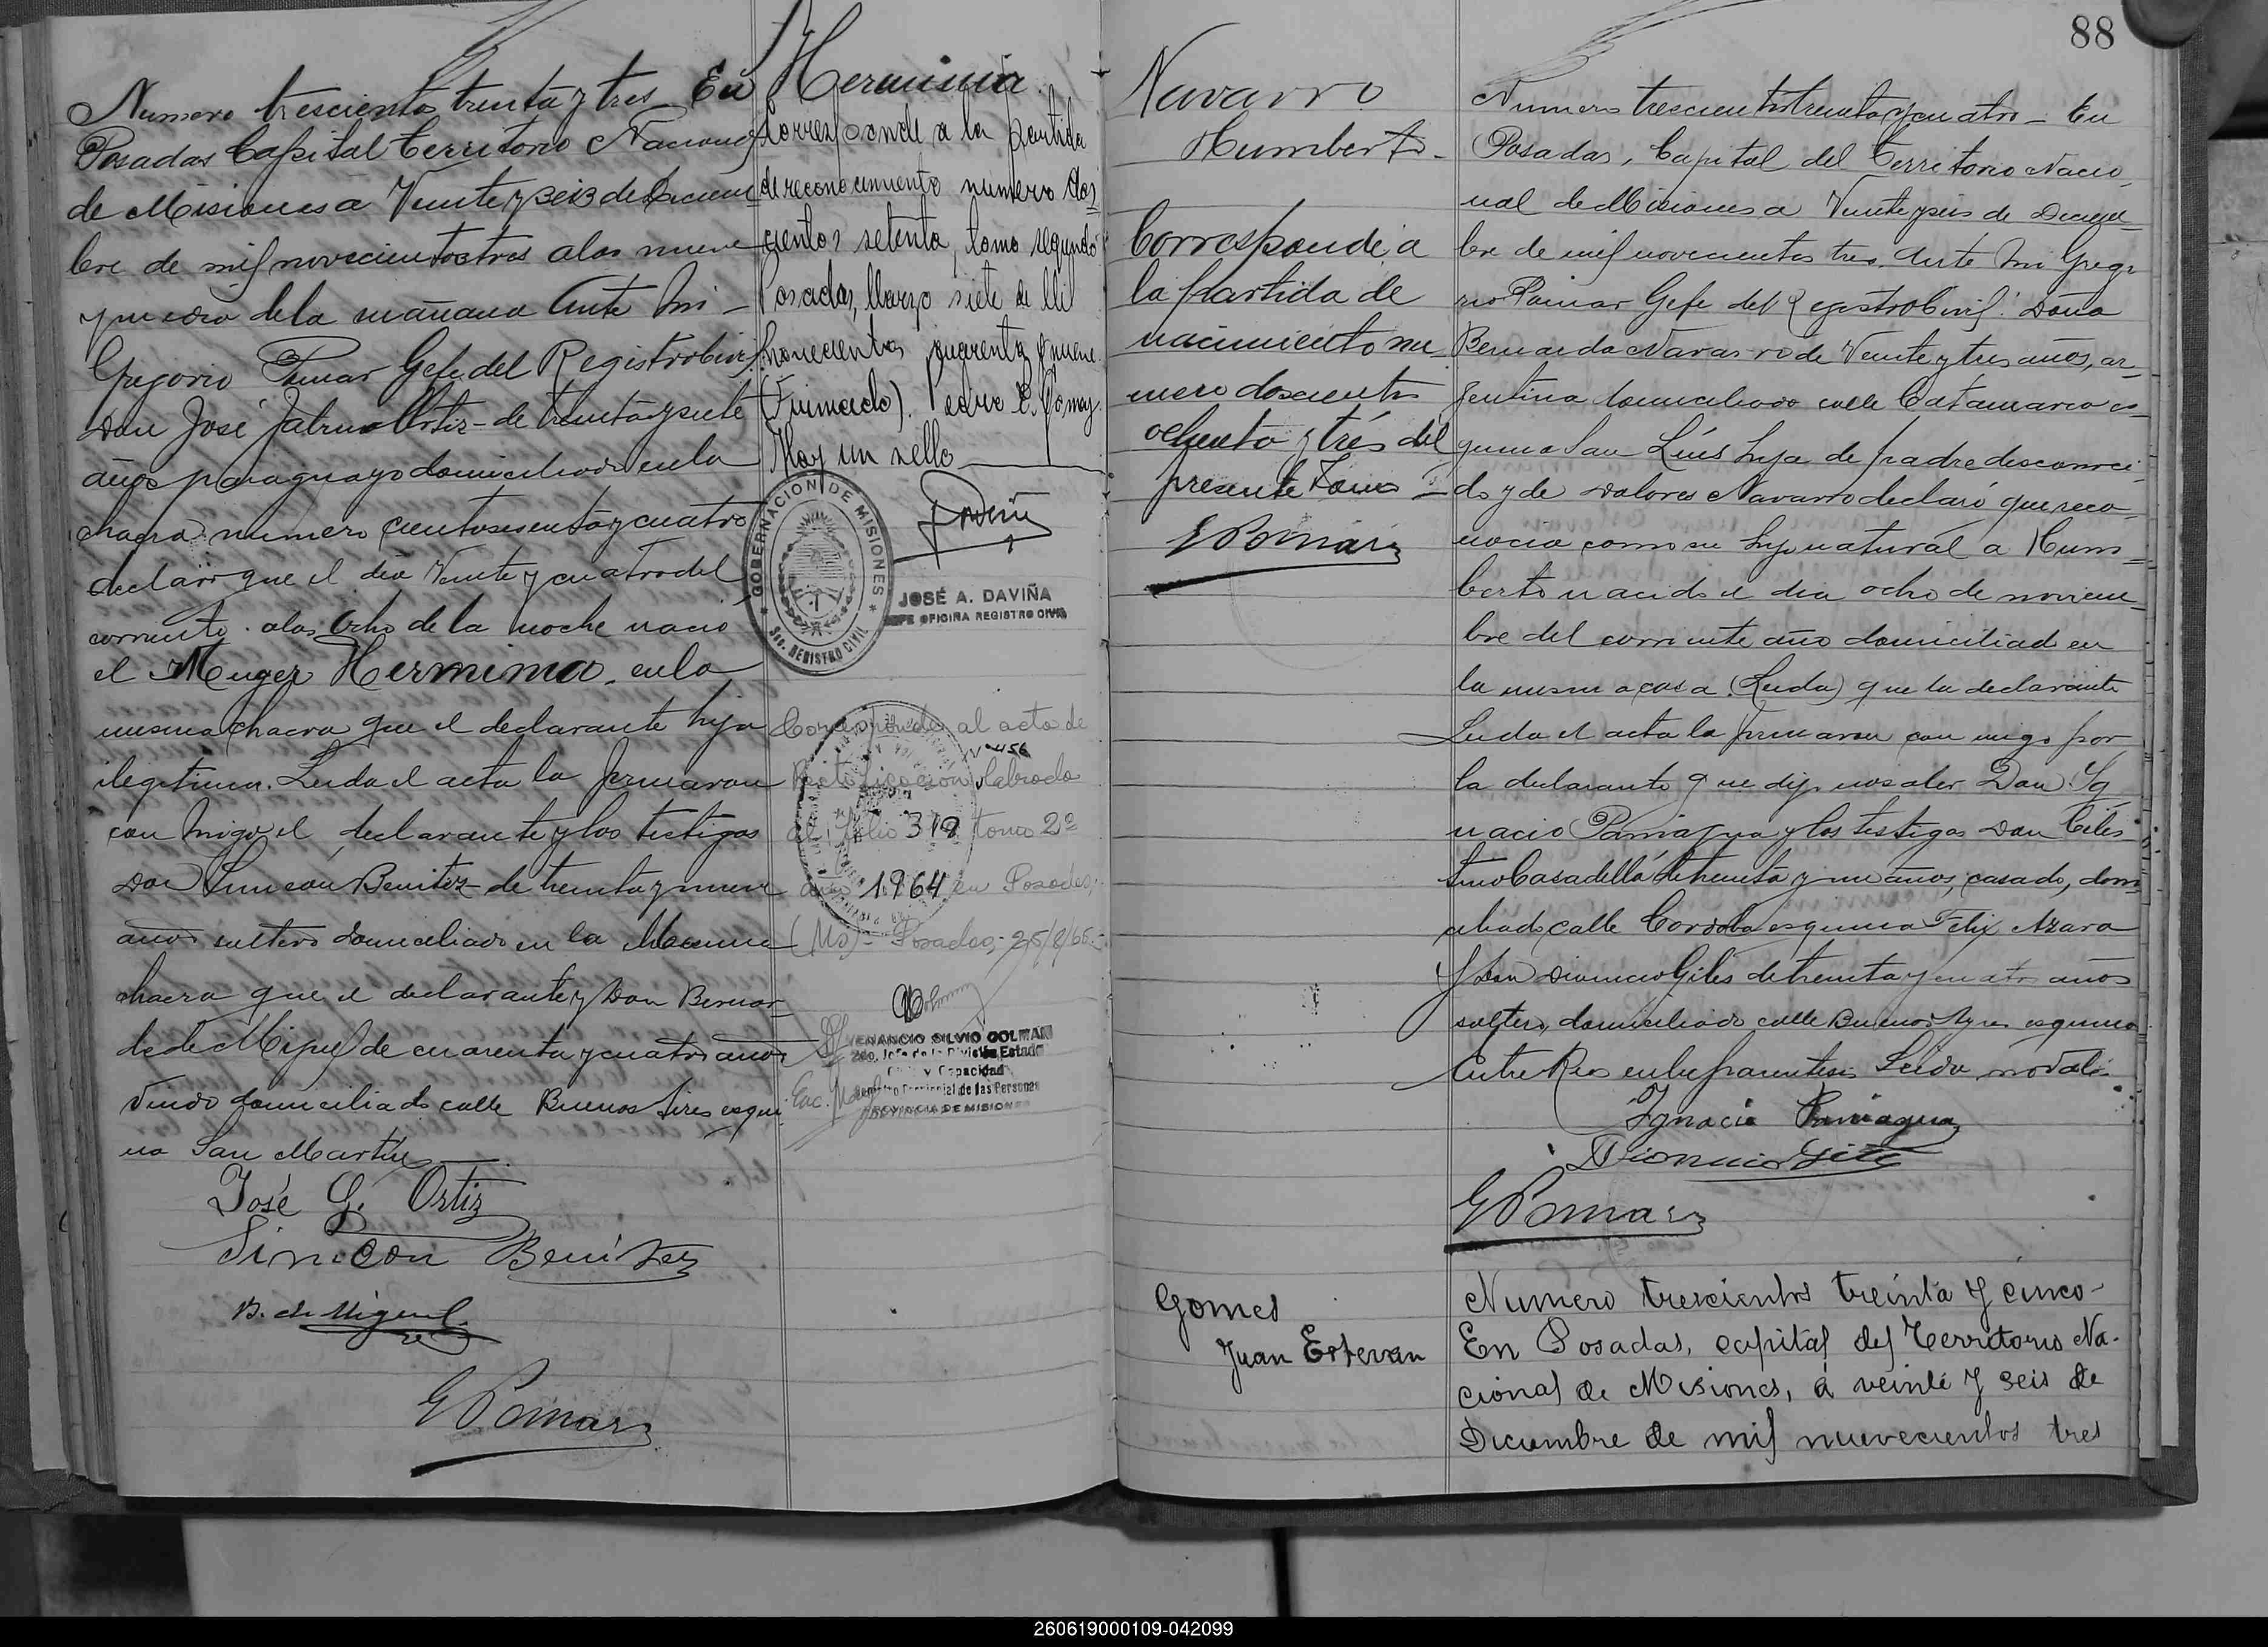 Numero trescientos treinta y tres En
Posadas Capital Territorio Nacional
de Misiones a Veinte y seis de Diciem
bre de mil novecientos tres a las nueve
y media de la mañana Ante Mi
Gregorio Pomar Gefe del Registro Civil
Don José Ortiz de treinta y siete
años paraguayo domiciliado en la
chacra numero ciento sesenta y cuatro
declaró que el dia Veinte y cuatro del
corriente a las Ocho de la noche nació
el Muger Herminia en la
misma chacra que el declarante hija
ilegitima. Leida el acta la firmaron
con migo el declarante y los testigos
Don Simeon Benitez de treinta y nueve
años soltero domiciliado en la Misma
chacra que el declarante y Don Bernar
do de Miguel de cuarenta y cuatro años
Viudo domiciliado calle Buenos Aires esqui
na San Martin
José G. Ortiz
Simeon Benitez
B. de Miguel
G Pomar
Herminia
Corresponde a la partida
de reconocimiento numero dos
cientos setenta, tomo segundo
Posadas, Marzo siete de Mil
novecientos cuarenta y nueve.
(Firmado). Pedro E. Gomez.
Hay un sello
GOBERNACION DE MISIONES
Sec. REGISTRO CIVIL
JOSÉ A. DAVIÑA
JEFE OFICINA REGISTRO CIVIL
Corresponde al acta de
Nº 456
Rectificacion labrada
al folio 319 tomo 2º
año 1964 en Posadas,
(Ms)- Posadas, 25/8/65.
VENANCIO SILVIO GOLMAN
2do. Jefe de la División Estado
Civil y Capacidad
Registro Provincial de las Personas
PROVINCIA DE MISIONES
88
Navarro
Humberto
Corresponde a
la partida de
nacimiento nu
mero doscientos
ochenta y trés del
presente tomo
G Pomar
Numero trescientos treinta y cuatro - En
Posadas, Capital del Territorio Nacio
nal de Misiones a Veinte y seis de Diciem
bre de mil novecientos tres. Ante Mi Grego
rio Pomar Gefe del Registro Civil: Doña
Bernarda Navarro de Veinte y tres años, ar
gentina domiciliado calle Catamarca es
quina San Luis hija de padre desconoci
do y de Dolores Navarro declaró que reco
nocia como su hijo natural a Hum
berto nacido el dia ocho de noviem
bre del corriente año domiciliado en
la misma casa (Leida) que la declarante
Leida el acta la firmaron con migo por
la declarante que dijo no saber Don Ig
nacio Paniagua y los testigos Don Celes
tino Casadellá de treinta y un años, casado, domi
ciliado calle Cordoba esquina Felix Azara
y Don Dionicio Giles de treinta y cuatro años
soltero, domiciliado calle Buenos Ayres esquina
Entre Rios entre parentesis Leida no vale
Ignacio Paniagua
Dionicio Giles
G Pomar
Gomes
Juan Estevan
Numero trescientos treinta y cinco-
En Posadas, capital del Territorio Na-
cional de Misiones, á veinte y seis de
Diciembre de mil nuevecientos tres
260619000109-042099